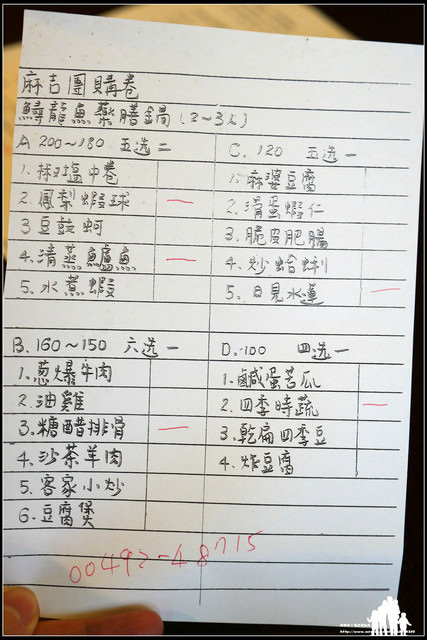 麻吉團購卷
鱘龍魚藥膳鍋(2~3人)
A 200~180 五选二
1. 椒塩中卷
2. 鳳梨蝦球 一
3 豆鼓蚵
4. 清蒸鱸魚 一
5. 水煮蝦
C. 120 五选一
1. 麻婆豆腐
2. 滑蛋蝦仁
3. 脆皮肥腸
4. 炒蛤蜊
5. 日見水蓮 一
B. 160~150 六选一
1. 葱爆牛肉
2. 油雞
3. 糖醋排骨 一
4. 沙茶羊肉
5. 客家小炒
6. 豆腐煲
D. 100 四选一
1. 鹹蛋苦瓜
2. 四季時蔬 一
3. 乾扁四季豆
4. 炸豆腐
00492-48715